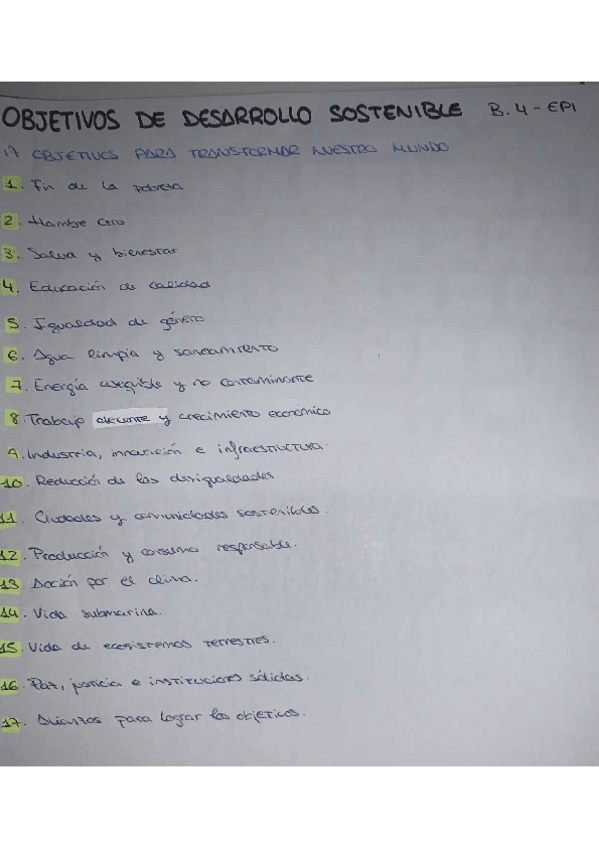 OBJETIVOS DE DESARROLLO SOSTENIBLE B.4 - EPI
17 OBJETIVOS PARA TRANSFORMAR NUESTRO MUNDO
1. Fin de la pobreza
2. Hambre cero
3. Salud y bienestar
4. Educación de calidad
5. Igualdad de género
6. Agua limpia y saneamiento
7. Energía asequible y no contaminante
8. Trabajo decente y crecimiento económico
9. Industria, innovación e infraestructura.
10. Reducción de las desigualdades
11. Ciudades y comunidades sostenibles.
12. Producción y consumo responsable.
13 Acción por el clima.
14. Vida submarina.
15. Vida de ecosistemas terrestres.
16. Paz, justicia e instituciones sólidas.
17. Alianzas para lograr los objetivos.